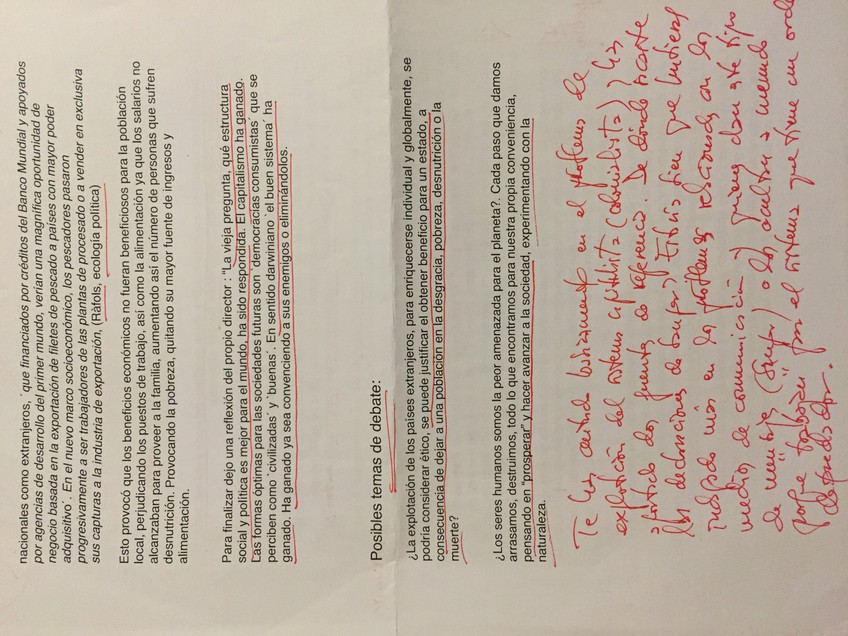 nacionales como extranjeros, ´que financiados por créditos del Banco Mundial y apoyados
por agencias de desarrollo del primer mundo, verían una magnífica oportunidad de
negocio basada en la exportación de filetes de pescado a países con mayor poder
adquisitivo´. En el nuevo marco socioeconómico, los pescadores pasaron
progresivamente a ser trabajadores de las plantas de procesado o a vender en exclusiva
sus capturas a la industria de exportación, (Ràfols, ecología política)
Esto provocó que los beneficios económicos no fueran beneficiosos para la población
local, perjudicando los puestos de trabajo, así como la alimentación ya que los salarios no
alcanzaban para proveer a la familia, aumentando así el número de personas que sufren
desnutrición. Provocando la pobreza, quitando su mayor fuente de ingresos y
alimentación.
Para finalizar dejo una reflexión del propio director : "La vieja pregunta, qué estructura
social y política es mejor para el mundo, ha sido respondida. El capitalismo ha ganado.
Las formas óptimas para las sociedades futuras son ´democracias consumistas´ que se
perciben como ´civilizadas´ y ´buenas´. En sentido darwiniano ´el buen sistema´ ha
ganado. Ha ganado ya sea convenciendo a sus enemigos o eliminándolos.
Posibles temas de debate:
¿La explotación de los países extranjeros, para enriquecerse individual y globalmente, se
podría considerar ético, se puede justificar el obtener beneficio para un estado, a
consecuencia de dejar a una población en la desgracia, pobreza, desnutrición o la
muerte?
¿Los seres humanos somos la peor amenazada para el planeta?. Cada paso que damos
arrasamos, destruimos, todo lo que encontramos para nuestra propia conveniencia,
pensando en "prosperar" y hacer avanzar a la sociedad, experimentando con la
naturaleza.
Te has centrado básicamente en el problema de
explotación del sistema capitalista (colonialista) y has
aportado dos fuentes de referencia. De dónde sacaste
las declaraciones de Sauper? Estaría bien que hubieras
indagado más en los problemas relacionados con los
medios de comunicación y quienes dan este tipo
de mensaje (Sauper) o los ocultan a menudo
porque trabajan por el sistema que tiene un orden
depredador.